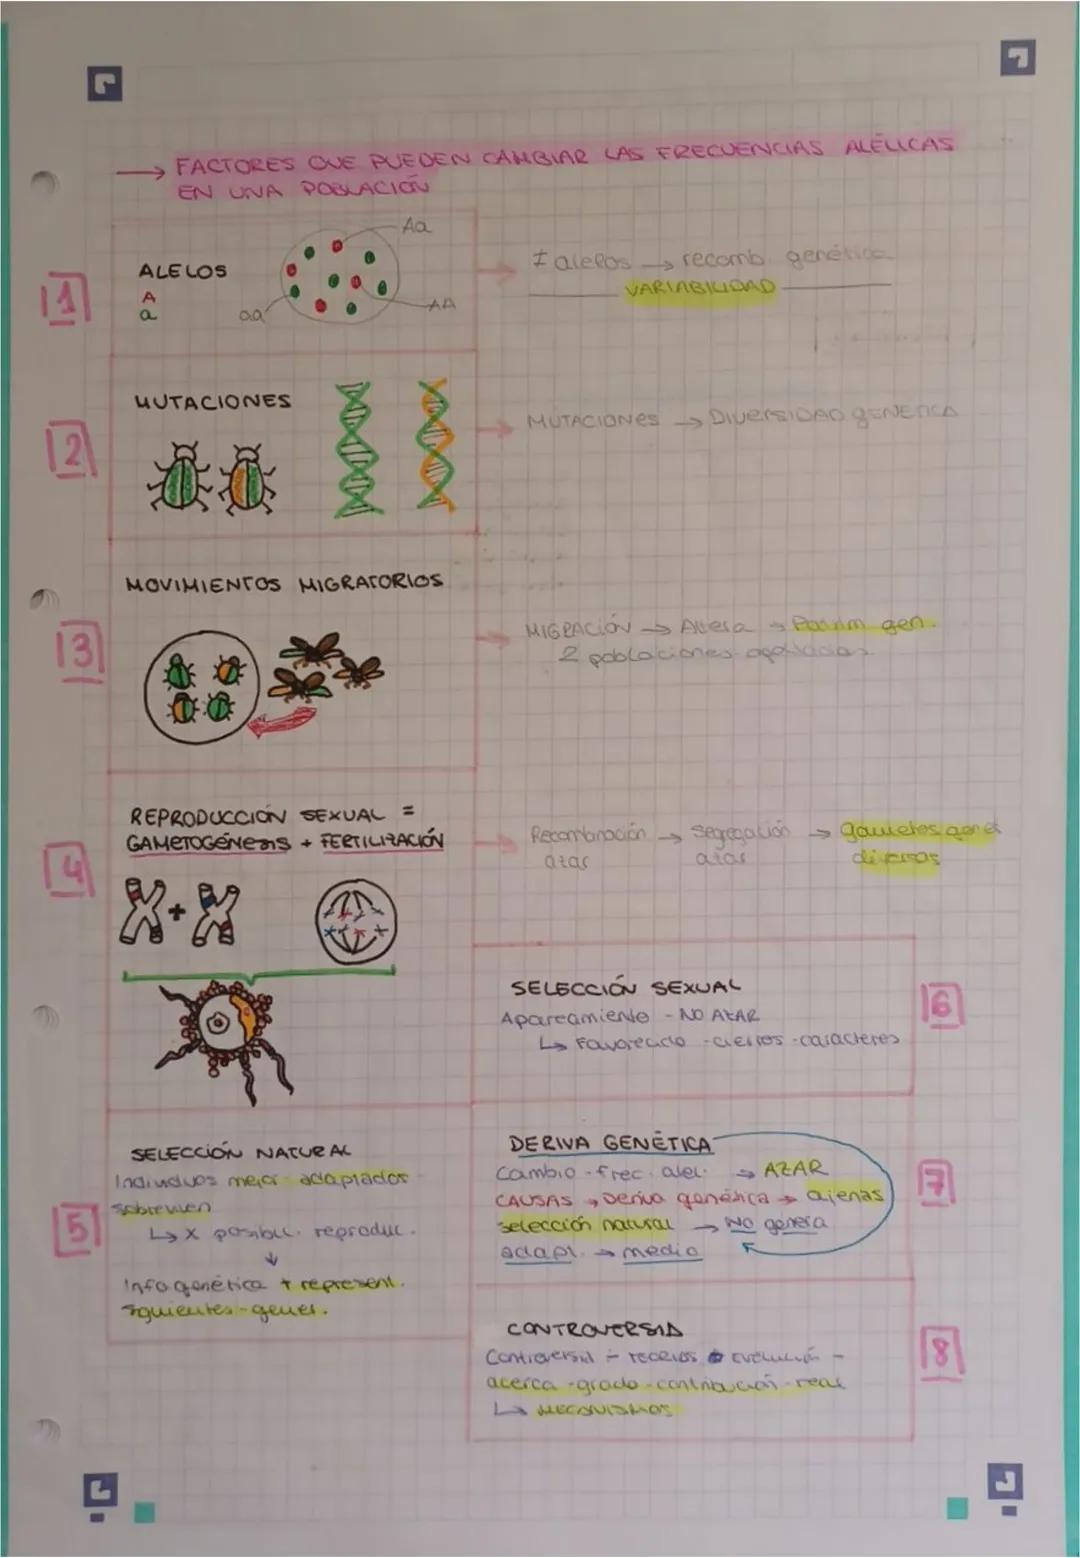 → FACTORES QUE PUEDEN CAMBIAR LAS FRECUENCIAS ALÉLICAS
EN UNA POBLACIÓN
1
ALELOS
A
a
Aa
aa
AA
≠ alelos → recomb. genética
VARIABILIDAD
2
MUTACIONES
MUTACIONES → DIVERSIDAD GENÉTICA
3
MOVIMIENTOS MIGRATORIOS
MIGRACIÓN → Altera → Patrim. gen.
2 poblaciones
4
REPRODUCCIÓN SEXUAL =
GAMETOGÉNESIS + FERTILIZACIÓN
Recombinación → Segregación → gametos genet
azar azar diversos
5
SELECCIÓN NATURAL
Individuos mejor adaptados
sobreviven
↳ x posibil. reproduc.
↓
Info genética + represent.
siguientes-gener.
6
SELECCIÓN SEXUAL
Apareamiento - NO AZAR
↳ Favorecido - ciertos - caracteres
7
DERIVA GENÉTICA
Cambio - frec. alel. → AZAR
CAUSAS → Deriva genética → ajenas
selección natural → No genera
adapt. → medio
8
CONTROVERSIA
Controversia - teorías evolución -
acerca - grado - contribución - real
↳ MECANISMOS